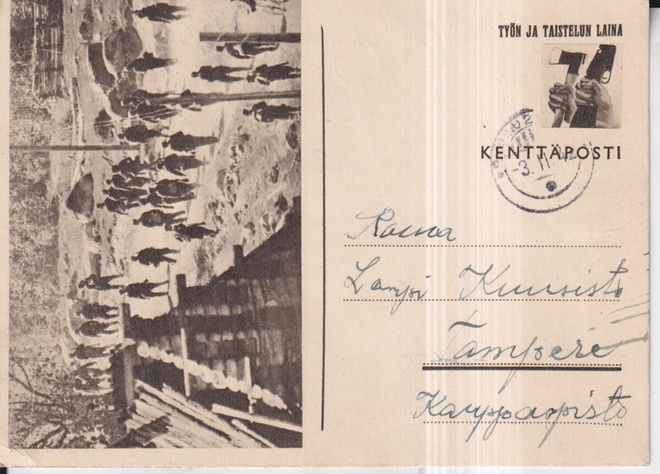 TYÖN JA TAISTELUN LAINA
KENTTÄPOSTI
2
-3. II. 42
Rouva
Kuusisto
Tampere
Kauppaopisto